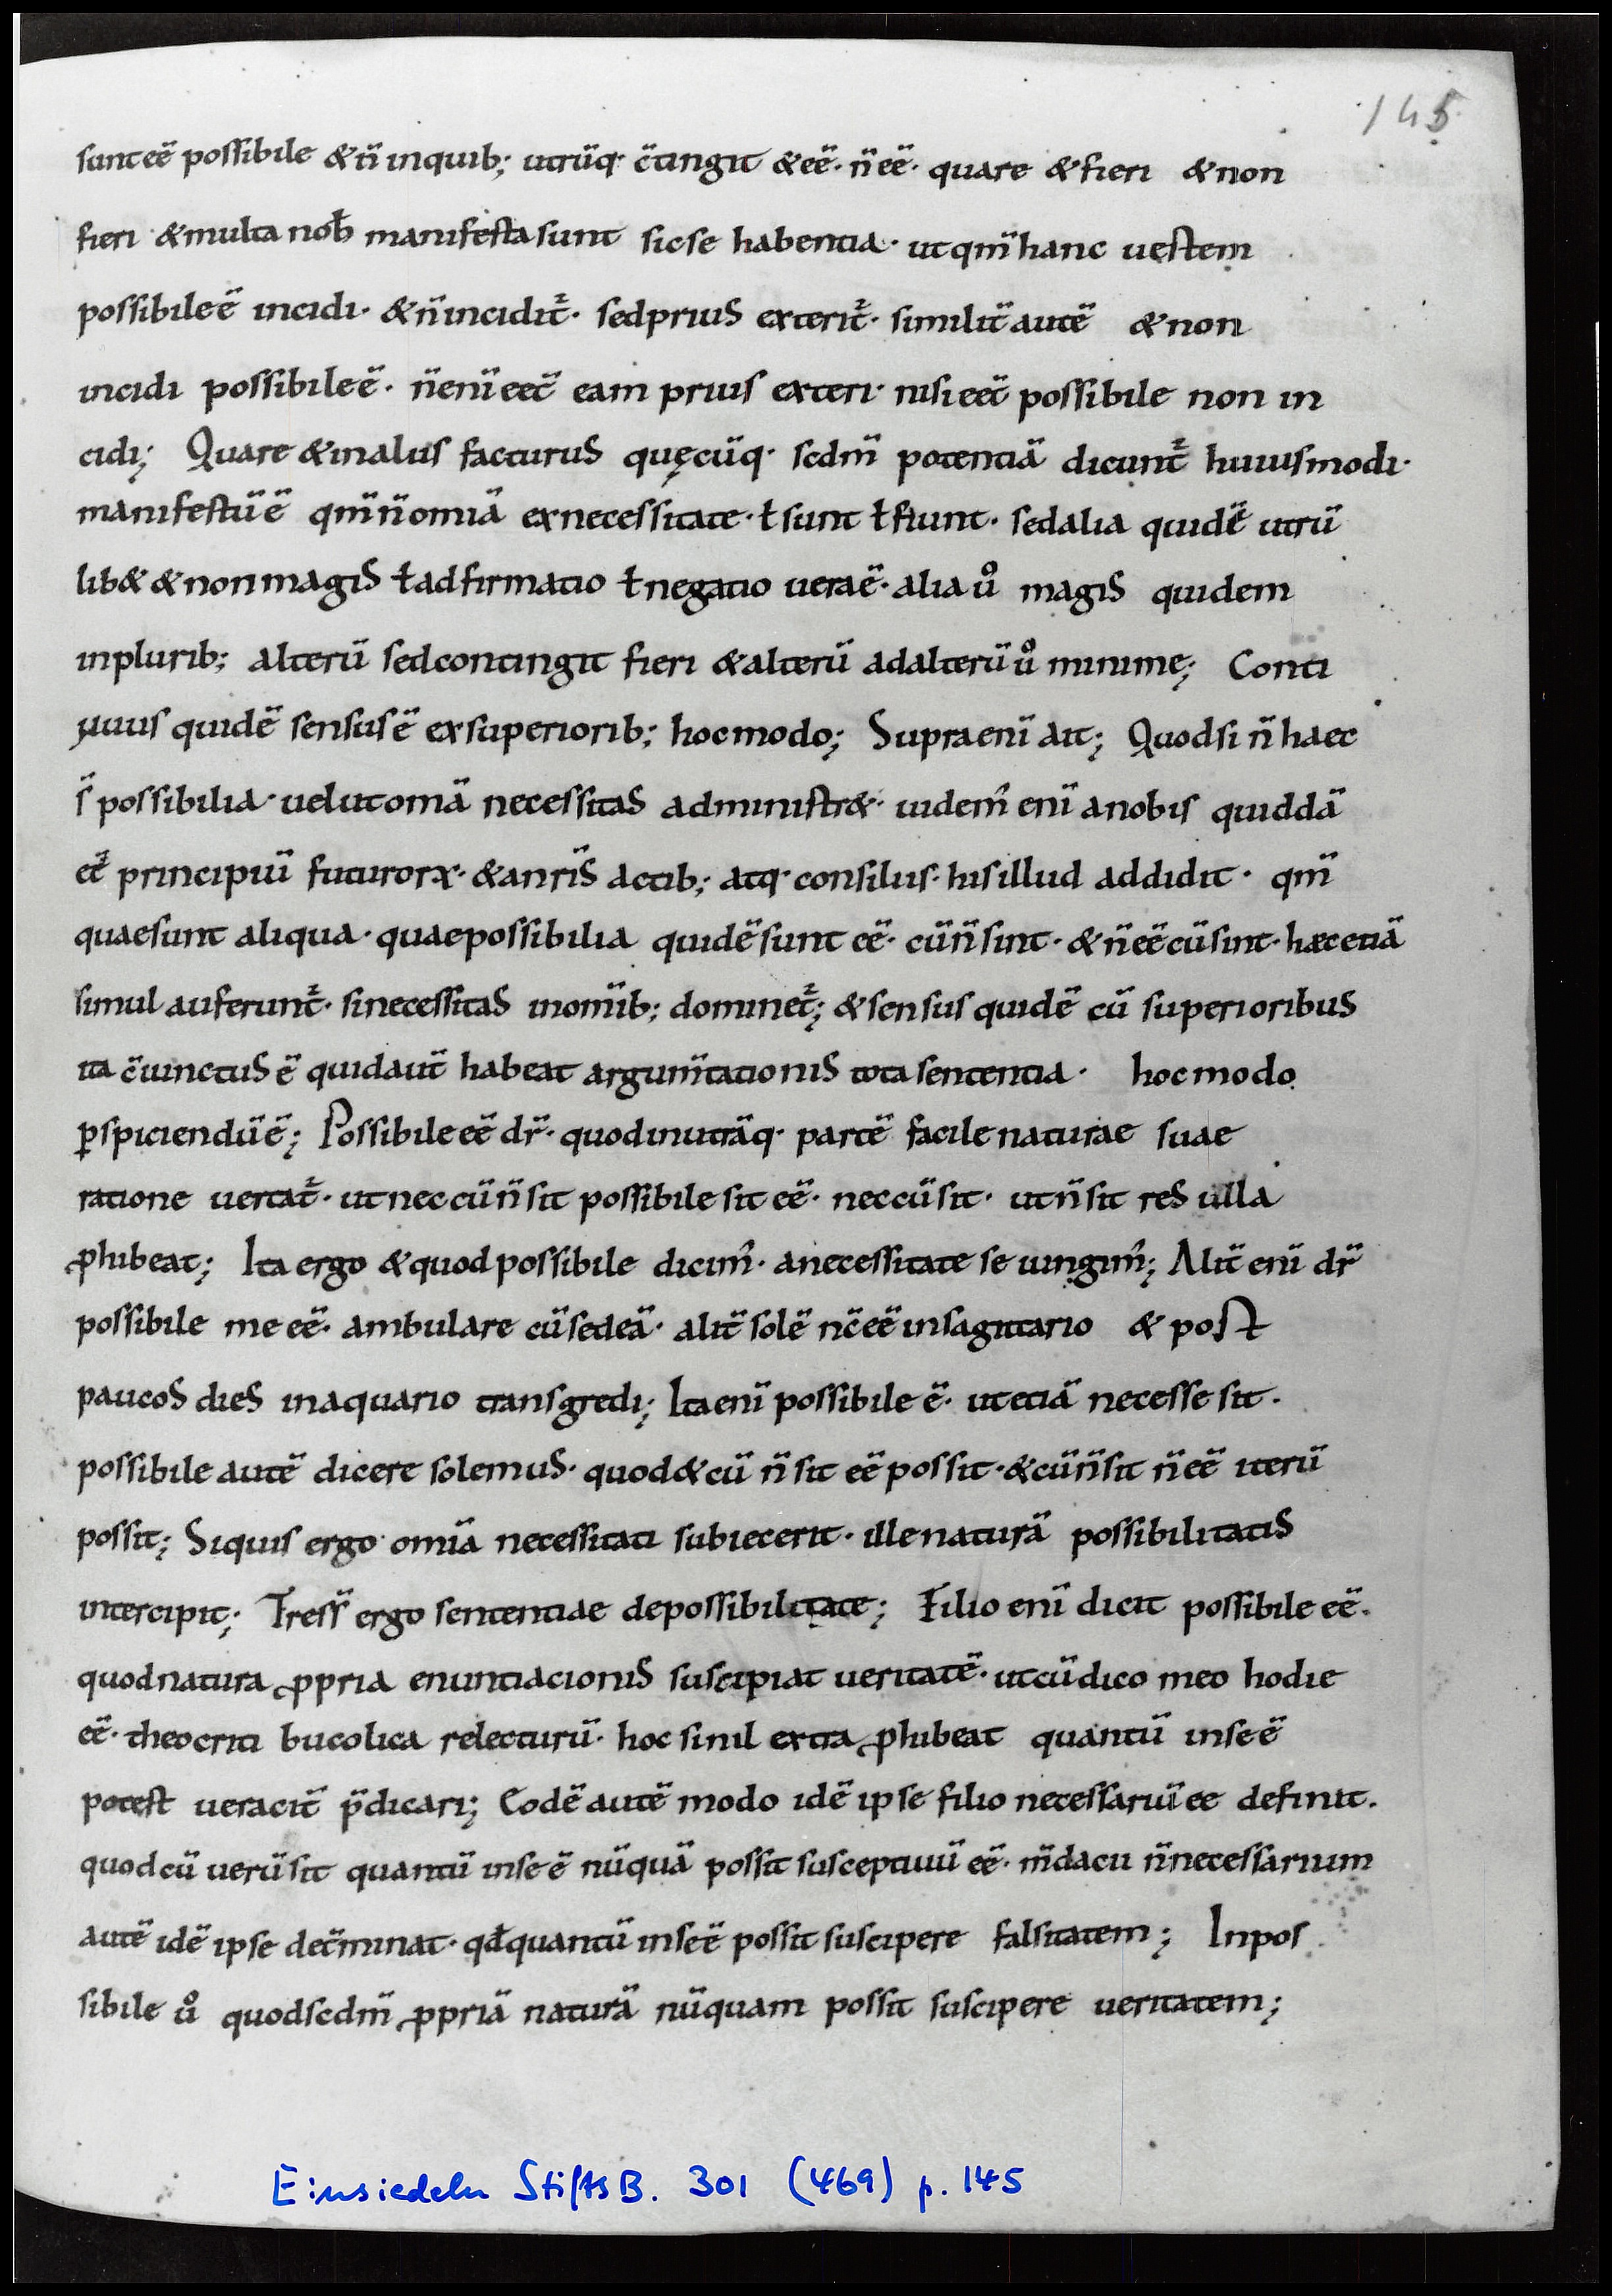 145
sunt eē possibile & n̄ in quib; utrūq· c̄tingit & eē· n̄ eē· quare & fieri & non
fieri & multa nob̄ manifesta sunt sic se habentia· ut qm̄ hanc uestem
possibile ē incidi· & n̄ incidit᷑· sed prius exterit᷑· similit̄ autē & non
incidi possibile ē· n̄ enī eet̄ eam prius exteri· nisi eet̄ possibile non in
cidi; Quare & in aliis facturus quęcūq· scdm̄ potentiā dicunt᷑ huiusmodi·
manifestū ē qm̄ n̄ omīa ex necessitate· ł sunt ł fiunt· sed alia quidē utrū
lib& & non magis ł adfirmatio ł negatio uera ē· alia uͦ magis quidem
in plurib; alterū sed contingit fieri & alterū ad alterū uͦ minime; Conti
nuus quidē sensus ē ex superiorib; hoc modo; Supra enī ait; Quod si n̄ haec
s̄ possibilia· uelut omā necessitas administr&· uidem᾽ enī a nobis quiddā
eē principiū futurorꝝ· & a nr̄is actib; atq· consiliis· his illud addidit· qm̄
quae sunt aliqua· quae possibilia quidē sunt eē· cū n̄ sint· & n̄ eē cū sint· haec etiā
simul auferunt᷑· si necessitas in om̄ib; dominet᷑; & sensus quidē cū superioribus
ita c̄iunctus ē quid aut̄ habeat argum̄tationis tota sententia· hoc modo
ꝑspiciendū ē; Possibile eē dr̄· quod in utrāq· partē facile naturae suae
ratione uertat᷑· ut nec cū n̄ sit possibile sit eē· nec cū sit· ut n̄ sit res ulla
ꝓhibeat; Ita ergo & quod possibile dicim᾽· a necessitate seiungim᾽; Alit̄ enī dr̄
possibile me eē· ambulare cū sedeā· alit̄ solē nc̄ eē in sagittario & post
paucos dies in aquario transgredi; Ita enī possibile ē· ut etiā necesse sit·
possibile autē dicere solemus· quod & cū n̄ sit eē possit· & cū n̄ sit n̄ eē iterū
possit; Siquis ergo omīa necessitati subiecerit· ille naturā possibilitatis
intercipit; Tres s̄ ergo sententiae de possibilitate; Filio enī dicit possibile eē·
quod natura ꝓpria enuntiacionis suscipiat ueritatē· ut cū dico meo hodie
eē· theocriti bucolica relecturū· hoc si nil extra ꝓhibeat quantū in se ē
potest ueracit̄ p̄dicari; Eodē autē modo idē ipse filio necessariū ee definit·
quod cū uerū sit quantū in se ē nūquā possit susceptiuū eē· m̄dacii n̄ necessarium
autē idē ipse det̄minat· qđ quantū in se ē possit suscipere falsitatem; Inpos
sibile uͦ quod scdm̄ ꝓpriā naturā nūquam possit suscipere ueritatem;
Einsiedeln StiftsB. 301 (469) p. 145